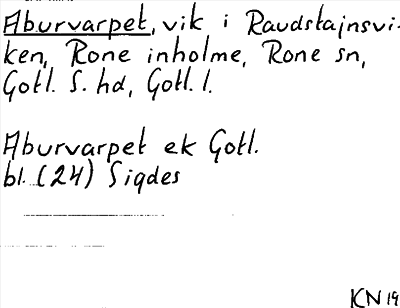 Aburvarpet, vik i Raudstajnsvi-
ken, Rone inholme, Rone sn,
Gotl. S. hd, Gotl. l.
Aburvarpet ek Gotl.
bl. (24) Sigdes
KN 19